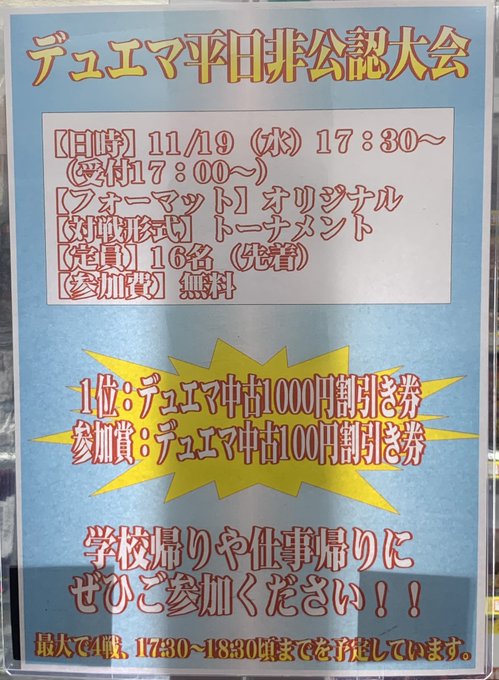 デュエマ平日非公認大会
【日時】11/19（水）17：30～
（受付17：00～）
【フォーマット】オリジナル
【対戦形式】トーナメント
【定員】16名（先着）
【参加費】無料
1位：デュエマ中古1000円割引き券
参加賞：デュエマ中古100円割引き券
学校帰りや仕事帰りに
ぜひご参加ください！！
最大で4戦、17:30～18:30頃までを予定しています。